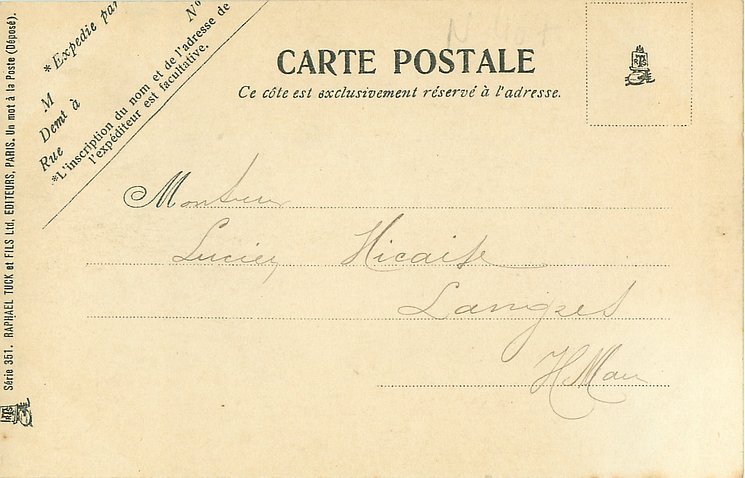 CARTE POSTALE
Ce côte est exclusivement réservé à l'adresse.
*Expedie par
N°
M
Demt à
Rue
*L'inscription du nom et de l'adresse de
l'expéditeur est facultative.
Série 351. RAPHAEL TUCK et FILS Ltd, EDITEURS, PARIS. Un mot à la Poste (Déposé).
Monsieur
Lucien
Langres
HMarn